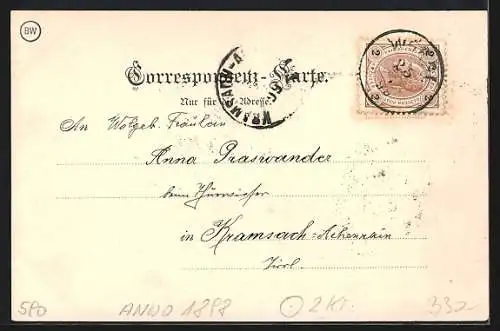 BW
Correspondenz-Karte.
KRAMSACH-A
Nur für die Adresse.
An Wolgeb. Fräulein
Anna Praswander
beim
in Kramsach-Achenrain
Tirol.
580 ANNO 1898 2 Kr. 332-